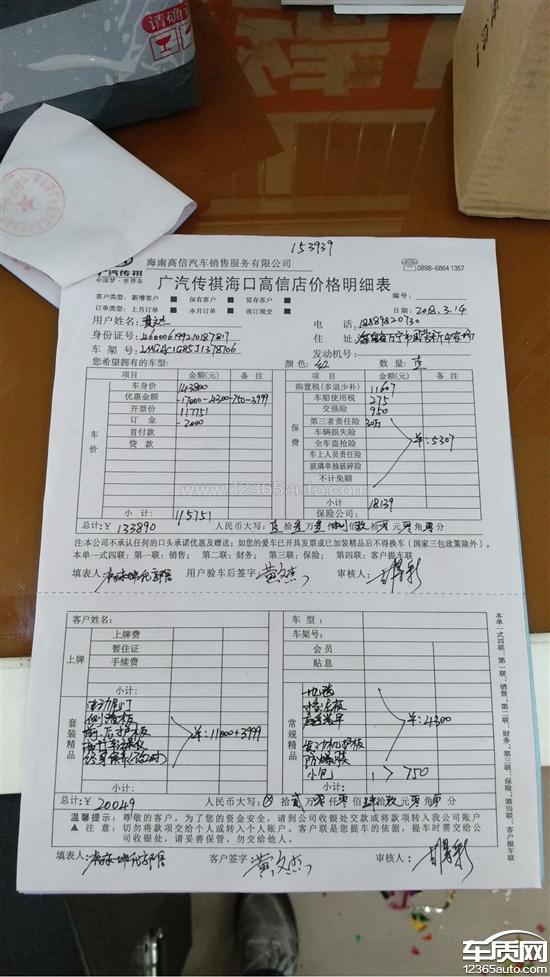 请确
153939
广汽传祺
中国梦·世界车
海南高信汽车销售服务有限公司
0898-68641357
广汽传祺海口高信店价格明细表
客户类型: 新增客户 ■ 保有客户 ■ 留存客户 ■ 编号:
订单类型: 上月订单 ■ 本月订单 ■ 现订现交 ■ 日期: 2018.3.14
用户姓名: 黄文杰 电 话:
身份证号: 460006199210187817 住 址:
车 架 号: 发动机号:
您希望拥有的车型: 颜色: 红 数量: 壹
项目 金额(元) 备 注 项目 金额(元) 备 注
车价 车身价 143800 保费 购置税(多退少补) 11607
优惠金额 -17000-4300-750-3999 车船使用税 275
开票价 117751 交强险 950
订 金 -2000 第三者责任险 30万
首付款 车辆损失险 单:5307
贷 款 全车盗抢险
车上人员责任险
玻璃单独破碎险
不计免赔
www.12365auto.com
小 计: 115751 小计: 18139
保险公司:
总计:¥ 133890 人民币大写: 拾 万 仟 佰 拾 元 角 分
注:本公司不承认任何的口头承诺优惠及赠送;如您的爱车已开具发票或已加装精品后不得换车(国家三包政策除外)。
本单一式四联:第一联:销售; 第二联:财务; 第三联:保险; 第四联:客户提车联
填表人: 用户验车后签字: 黄文杰 审核人:
客户姓名: 车 型:
上牌 上牌费 车架号:
暂住证 会 员
手续费 贴息
小计: 小计:
套装精品 单:11000+3999 常规精品 地毯
单:4300
防爆膜
小包 750
小计: 小计:
总计:¥ 20049 人民币大写: ⊗ 拾 贰 万 零 仟 零 佰 肆 拾 玖 元 零 角 零 分
温馨提示: 尊敬的客户,为了您的资金安全,请到公司收银处交款或将款项转入我公司账户
▲ 注意: 切勿将款项交给个人或转入个人账户。客户联是您提车的依据,提车时需交给公司收银处,请妥善保管,勿交给他人。
填表人: 客户签字: 黄文杰 审核人:
本单一式四联:第一联:销售;第二联:财务;第三联:保险;第四联:客户提车联
车质网
12365auto.com